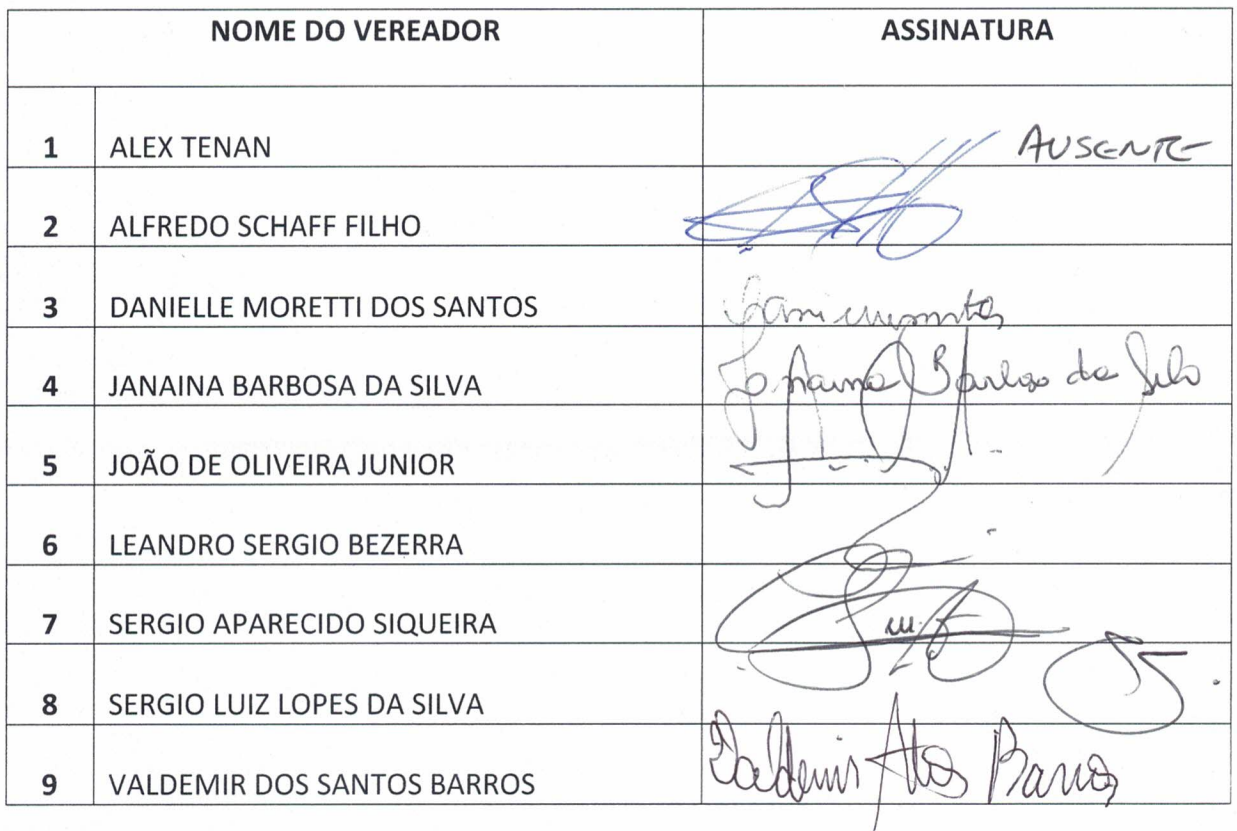 NOME DO VEREADOR ASSINATURA
1 ALEX TENAN AUSENTE
2 ALFREDO SCHAFF FILHO
3 DANIELLE MORETTI DOS SANTOS
4 JANAINA BARBOSA DA SILVA Janaina Barbosa da Silva
5 JOÃO DE OLIVEIRA JUNIOR
6 LEANDRO SERGIO BEZERRA
7 SERGIO APARECIDO SIQUEIRA
8 SERGIO LUIZ LOPES DA SILVA
9 VALDEMIR DOS SANTOS BARROS Valdemir Barros